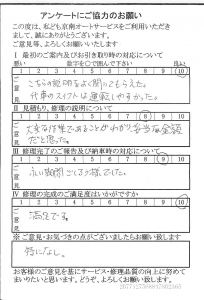 アンケートにご協力のお願い
この度は、私ども京南オートサービスをご利用いただき
まして、誠にありがとうございます。
ご意見等、よろしくお願いいたします
Ⅰ 最初のご案内及びお引き取り時の対応について
悪い 数字を○で囲んで下さい 良い
1 2 3 4 5 6 7 8 9 10
ご意見
こちらの説明をよく聞いてもらえた。
代車のスイフトは運転しやすかった。
Ⅱ 見積もり、修理の説明について
1 2 3 4 5 6 7 8 9 10
ご意見
大変な作業であることがわかり妥当な金額
だと思った。
Ⅲ 修理完了のご報告及び納車時の対応について
1 2 3 4 5 6 7 8 9 10
ご意見
長い期間
Ⅳ 修理の完成のご満足度はいかがですか
1 2 3 4 5 6 7 8 9 10
ご意見
満足です。
※ご意見・お気づきの点がございましたらお願い致します
特になし。
お客様のご意見を基にサービス・修理品質の向上に努めて
まいりたいと思います。どうぞ、よろしくお願い致します。